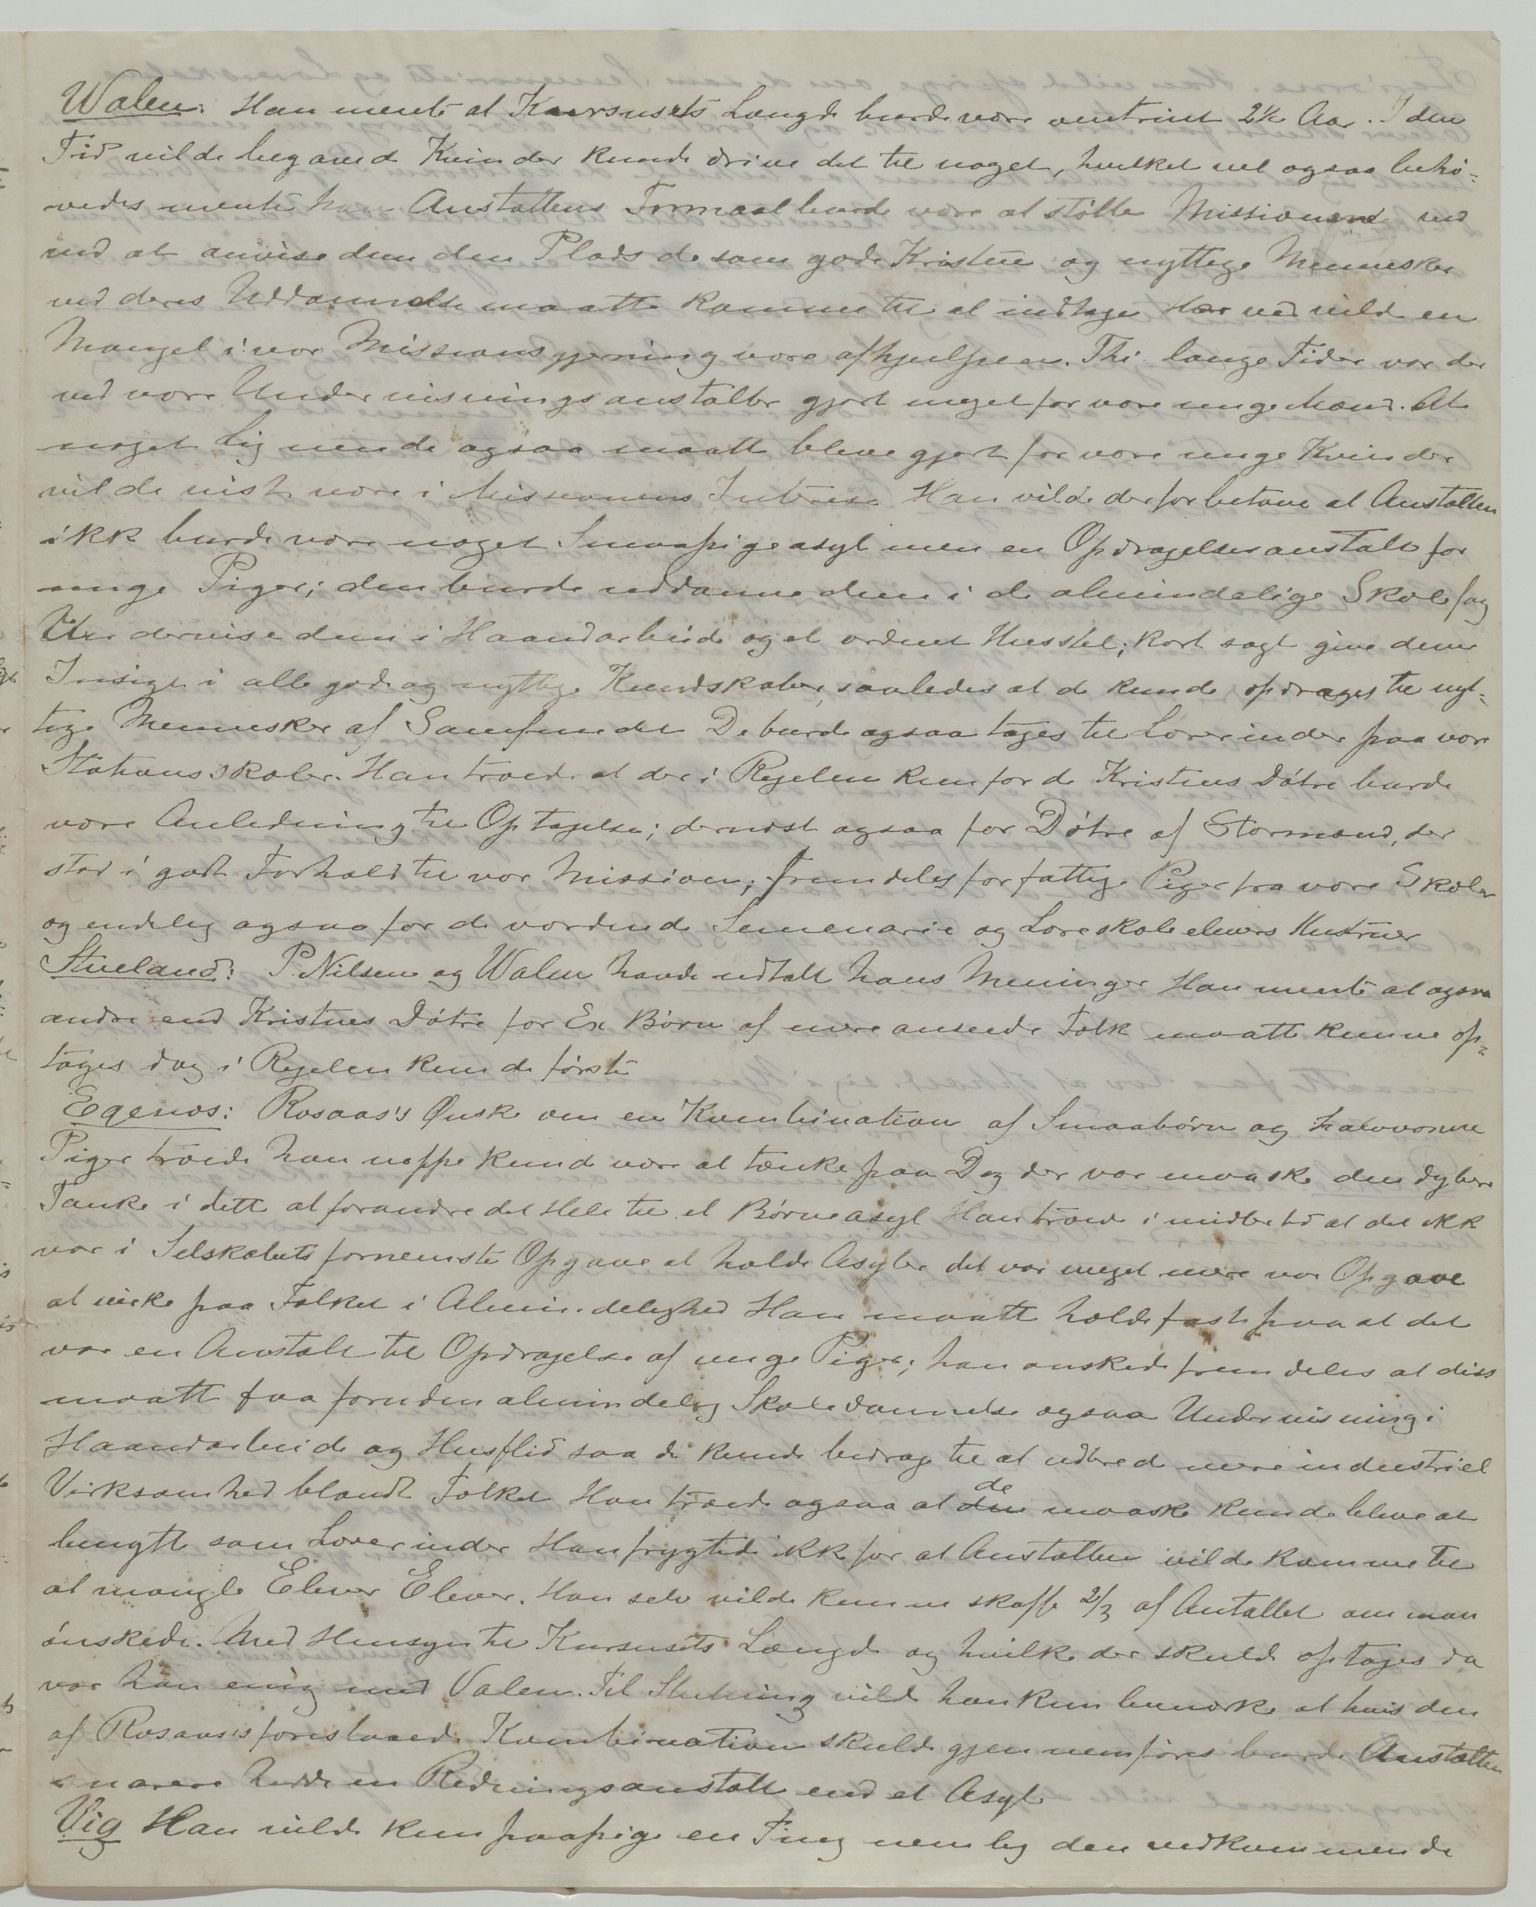 Walen: Han mente at Kursusets Længde burde være omtrent 2½ Aar. I den
Tid vilde begavede Kvinder kunde drive det til noget, hvilket vel ogsaa behø-
vedes mente han Anstaltens Formaal burde være at støtte Missionen ved
ved at anvise dem den Plads de som gode Kristne og nyttige Mennesker
ved deres Uddannelse maatte komme til at indtage Herved vilde en
Mangel i vor Missionsgjerning være afhjulpen. Thi lange Tider var der
ved vore Undervisningsanstalter gjort meget for vore unge Mænd. At
noget lignende ogsaa maatte bleve gjort for vore unge Kvinder
vilde vist være i Missionens Interesse Han vilde derfor betone at Anstalten
ikke burde være noget Smaapigeasyl men en Opdragelsesanstalt for
unge Piger; den burde uddanne dem i de almindelige Skolefag
Undervise dem i Haandarbeide og et ordnet Husstel; kort sagt give dem
Insigt i alle gode og nyttige Kundskaber, saaledes at de kunde opdrages til nyt-
tige Mennesker af Samfundet De burde ogsaa tages til Lærerinder paa vore
Stationsskoler. Han troede at der i Regelen kun for de Kristnes Døtre burde
være Anledning til Optagelse; dernæst ogsaa for Døtre af Stormænd, der
stod i godt Forhold til vor Mission; fremdeles for fattige Piger fra vore Skoler
og endelig ogsaa for de vordende Semenarie og Læreskoleelevers Hustruer
Stueland: P. Nilsen og Walen havde udtalt hans Meninger Han mente at ogsaa
andre end Kristnes Døtre for Ex Børn af mere ansende Folk maatte kunne op-
tages dog i Regelen kun de første
Egenæs: Rosaas's Ønske om en Kombination af Smaabørn og halvvoxne
Piger troede han neppe kunde være at tænke paa Dog der var maaske den dybere
Tanke i dette at forandre det Hele til et Børneasyl Han troede imidlertid at det ikke
var i Selskabets fornemste Opgave at holde Asyler det var meget mere vor Opgave
at virke paa Folket i Almindelighed Han maatte holde fast paa at det
var en Anstalt til Opdragelse af unge Piger; han ønskede fremdeles at disse
maatte faa foruden almindelig Skoledannelse ogsaa Undervisning i
Haandarbeide og Husflid saa de kunde bedrage til at udbrede mere industriel
Virksomhed blandt Folket Han troede ogsaa at de maaske kunde bleve at
benytte som Lærerinder Han frygtede ikke for at Anstalten vilde komme til
at mangle Elever Elever. Han selv vilde kunne skaffe 2/3 af Antallet om man
ønskede. Med Hensyn til Kursusets Længde og hvilke der skulde optages da
var han enig med Valen. Til Slutning vilde han kun bemærke at hvis den
af Rosaas's foreslaaede Kombination skulde gjennemføres burde Anstalten
snarere hedde en Redningsanstalt end et Asyl
Vig Han vilde kun paapige en Ting nemlig den vedkommende